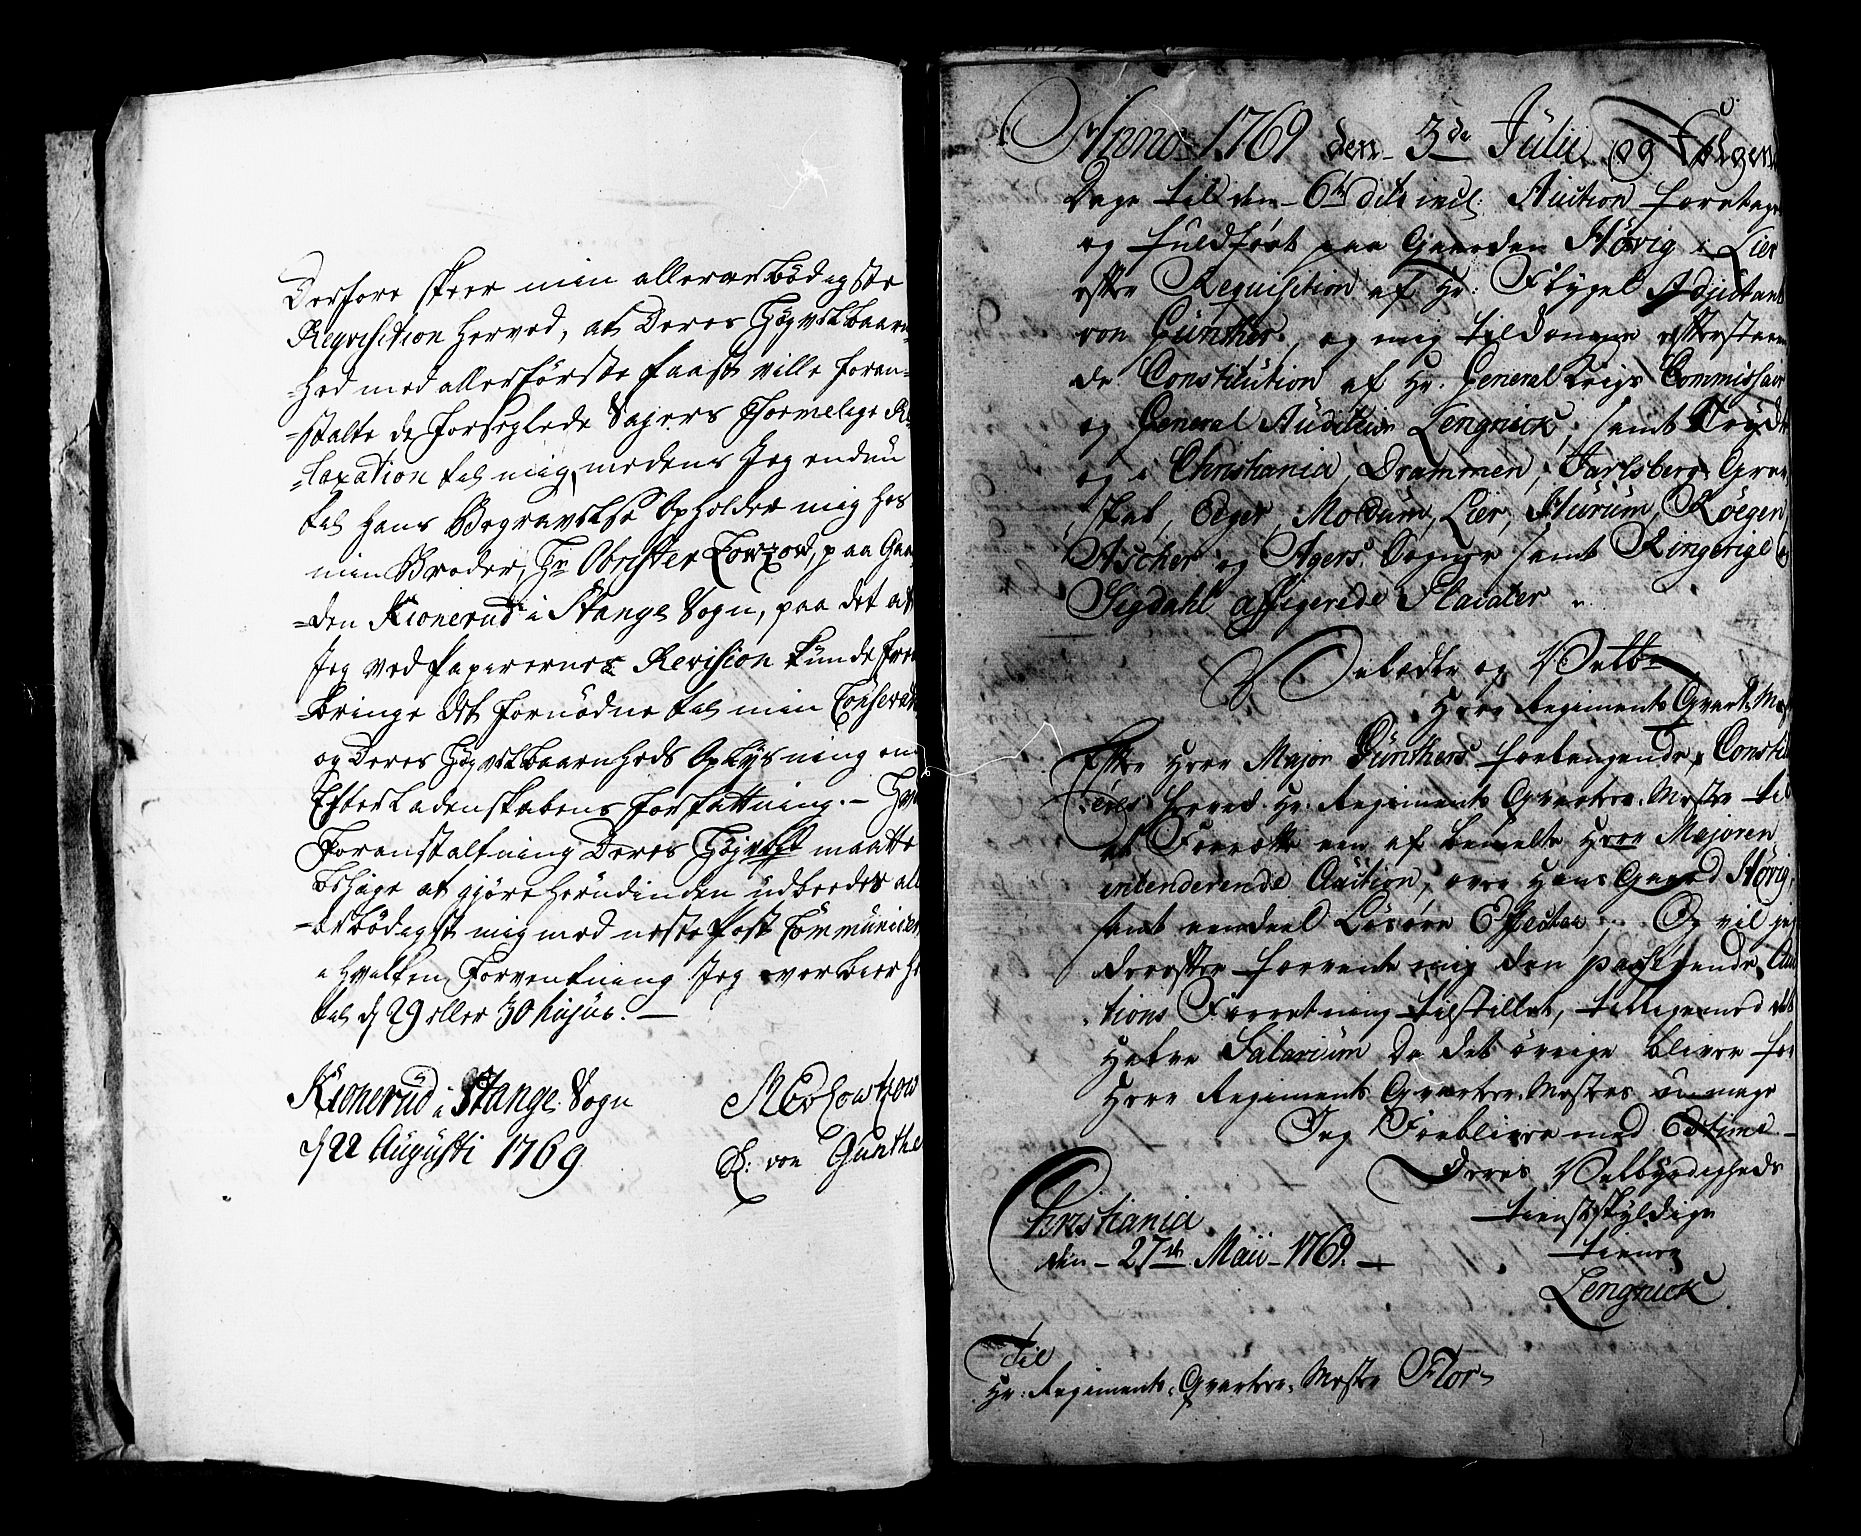 Derfore skeer min allerærbödigste
Reqvisition herved, at Deres Högvelbaarn=
=hed med allerförste Paast ville foran=
=stalte de forseglede Sagers formelige Re
=laxation til mig, medens Jeg endnu
til Hans Begravelse Opholder mig hos
min Broder, Hr Obrister Lowzow, paa Gaar
=den Kionerud i Stange Sogn, paa det at
Jeg ved Papirernes Revision kunde frem
=bringe det fornödne til min Conservation
og Deres Högvelbaarnheds Oplysning om
Efterladenskabens Forfattning. – Hvad
Foranstaltning Deres Högvelbt maatte
behage at gjöre herudinden udbeedes aller
=ærbödigst mig med neste Post Communiceret
i Hvilken Forventning Jeg overbier her
til d 29 eller 30 hujus. —
Kionerud i Stange Sogn
d 22 Augusti 1769
Lowtzow
S: von Gunthe
Anno 1769 den 3de Julii og Fölgen
Dage til den 6te dito incl: Auction foretage
og fuldfört paa Gaarden Hövig i Lier
efter Requisition af Hr: Flygel Adjutant
von Günther, og mig tildeneme efterstaaen
de Constitution af Hr. General Krigs Commissair
og General Auditeur Lengnick, samt
og i Christiania, Drammen, Jarlsberg Grev
skab, Eger, Modum, Lier, Hurum, Röegen
Ascher og Agers Sogner samt Ringerige og
Sigdahl affigerede Placater
Velædle og Velb=
Herr Regiments Qvart: Mest
Efter Herr Major Günthers forlangende, Constitu
eres herved Hr: Regiments Qvarteer Mester til
at Forrette een af bemelte Herr Majoren
intenderende Auction, over Hans Gaard Hövig,
samt eendeel Lösöre Effecter. Og vil jeg
derefter forvente mig den passerende Auc
tions Forretning tilstillet, tilligemed det
Halve Salarium da det övrige bliver for
Herr Regiments Qvarteer Mesters umage
Jeg Forbliver med Estime
Deres Velbyrdigheds
tienstskyldige
tiener
Lengnick
Christiania
den 27de Maii 1769.
Til
Hr: Regiments Qvarteer Mester Flor